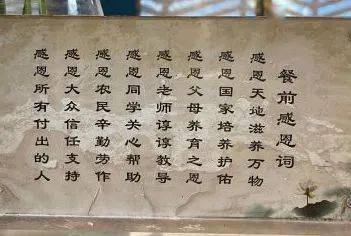 餐前感恩词
感恩天地滋养万物
感恩国家培养护佑
感恩父母养育之恩
感恩老师谆谆教导
感恩同学关心帮助
感恩农民辛勤劳作
感恩大众信任支持
感恩所有付出的人